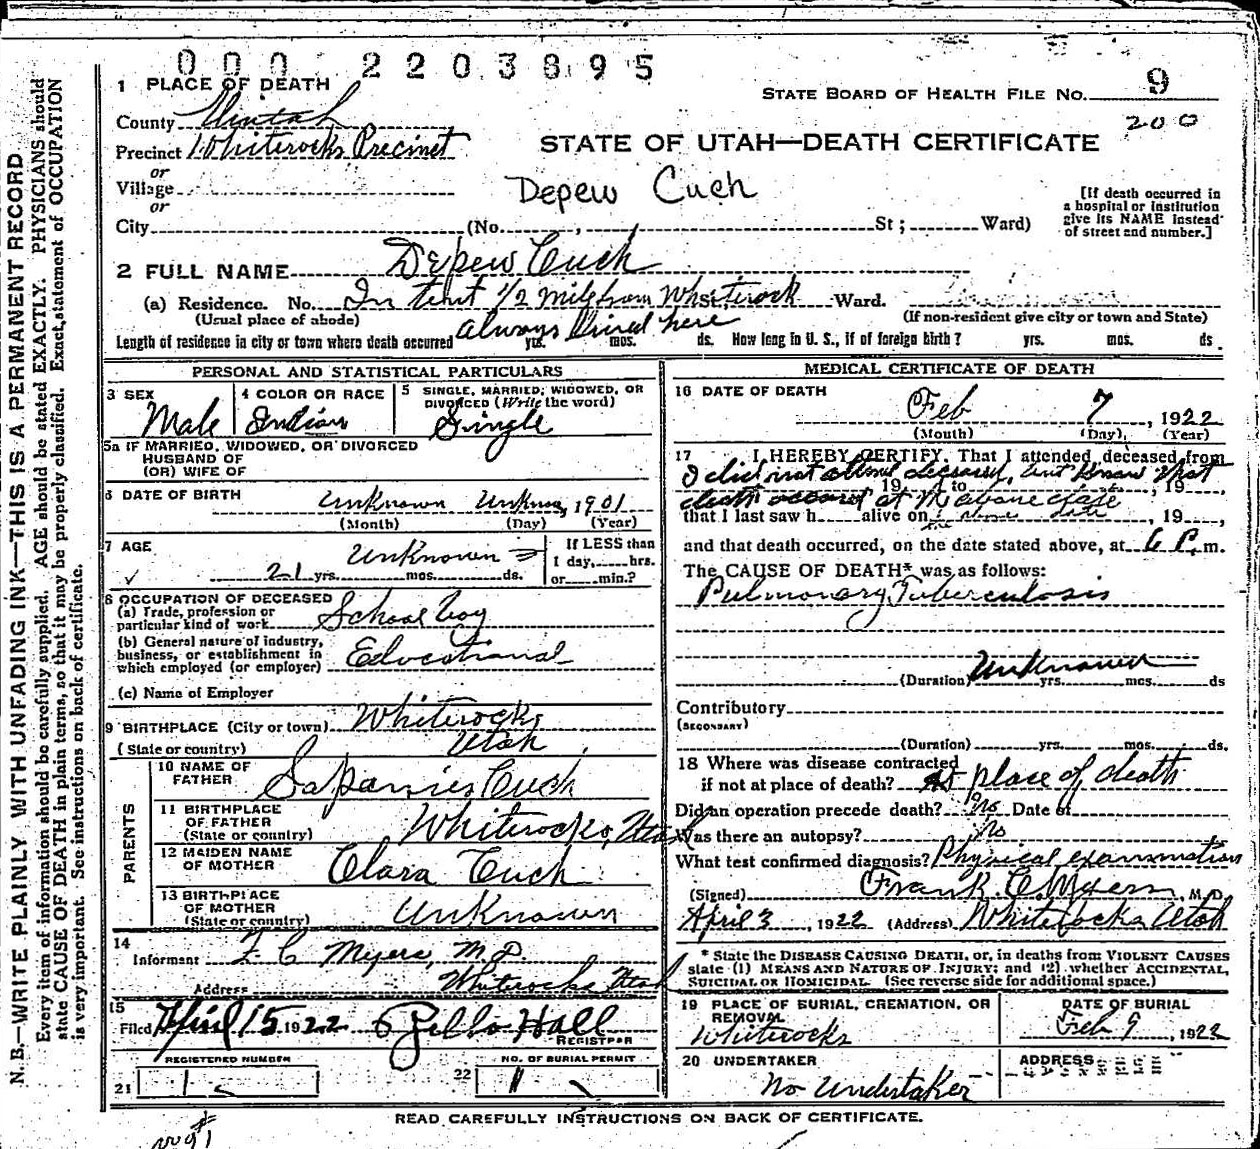 000 2203895
1 PLACE OF DEATH
STATE BOARD OF HEALTH FILE NO. 9
200
County Uintah
Precinct Whiterocks Precinct
STATE OF UTAH—DEATH CERTIFICATE
or
Village
Depew Cuch
or
City (No. , St ; Ward)
[If death occurred in
a hospital or institution
give its NAME instead
of street and number.]
2 FULL NAME Depew Cuch
(a) Residence. No. In tent 1/2 mile from Whiterock Ward.
(Usual place of abode)
(If non-resident give city or town and State)
always lived here
Length of residence in city or town where death occurred yrs. mos. ds. How long in U. S., if of foreign birth? yrs. mos. ds.
PERSONAL AND STATISTICAL PARTICULARS
3 SEX Male
4 COLOR OR RACE Indian
5 SINGLE, MARRIED, WIDOWED, OR
DIVORCED (Write the word)
Single
5a IF MARRIED, WIDOWED, OR DIVORCED
HUSBAND OF
(OR) WIFE OF
6 DATE OF BIRTH Unknown Unknown, 1901
(Month) (Day) (Year)
7 AGE Unknown
21 yrs. mos. ds.
If LESS than
1 day, hrs.
or min.?
8 OCCUPATION OF DECEASED
(a) Trade, profession or
particular kind of work School boy
(b) General nature of industry,
business, or establishment in
which employed (or employer) Educational
(c) Name of Employer
9 BIRTHPLACE (City or town) Whiterocks
(State or country) Utah
PARENTS
10 NAME OF
FATHER Saparies Cuch
11 BIRTHPLACE
OF FATHER
(State or country) Whiterocks, Utah
12 MAIDEN NAME
OF MOTHER Clara Cuch
13 BIRTHPLACE
OF MOTHER
(State or country) Unknown
14
Informant F. C. Myers, M.D.
Address Whiterocks Utah
15
Filed April 15 1922 Hall
REGISTRAR
REGISTERED NUMBER
21 1
NO. OF BURIAL PERMIT
22 1
MEDICAL CERTIFICATE OF DEATH
16 DATE OF DEATH
Feb 7, 1922
(Month) (Day) (Year)
17 I HEREBY CERTIFY, That I attended deceased from
I did not attend deceased, but know that
, 19 , to , 19 ,
death occured at above date
that I last saw h alive on , 19 ,
and that death occurred, on the date stated above, at 6 P. m.
The CAUSE OF DEATH* was as follows:
Pulmonary Tuberculosis
(Duration) Unknown yrs. mos. ds
Contributory
(SECONDARY)
(Duration) yrs. mos. ds.
18 Where was disease contracted
if not at place of death? At place of death
Did an operation precede death? No Date of
Was there an autopsy? No
What test confirmed diagnosis? Physical examination
(Signed) Frank C Myers, M.D.
April 3, 1922 (Address) Whiterocks Utah
* State the DISEASE CAUSING DEATH, or, in deaths from VIOLENT CAUSES
state (1) MEANS AND NATURE OF INJURY; and (2) whether ACCIDENTAL,
SUICIDAL OR HOMICIDAL. (See reverse side for additional space.)
19 PLACE OF BURIAL, CREMATION, OR
REMOVAL
Whiterocks
DATE OF BURIAL
Feb 9, 1922
20 UNDERTAKER
No Undertaker
ADDRESS
READ CAREFULLY INSTRUCTIONS ON BACK OF CERTIFICATE.
N. B.—WRITE PLAINLY WITH UNFADING INK—THIS IS A PERMANENT RECORD
Every item of information should be carefully supplied. AGE should be stated EXACTLY. PHYSICIANS should
state CAUSE OF DEATH in plain terms, so that it may be properly classified. Exact statement of OCCUPATION
is very important. See instructions on back of certificate.